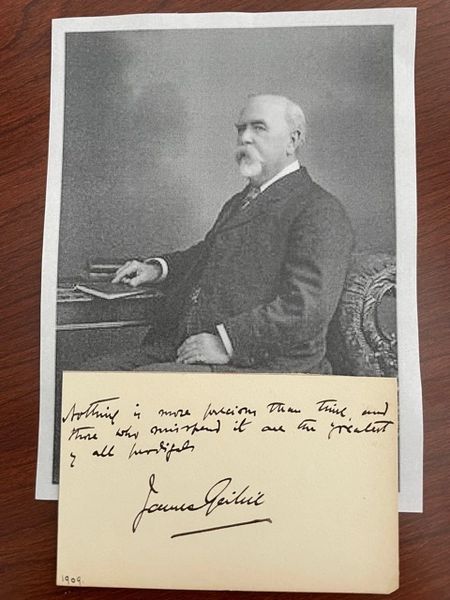 Nothing is more precious than time, and
those who misspend it are the greatest
of all prodigals
James Geikie
1909.